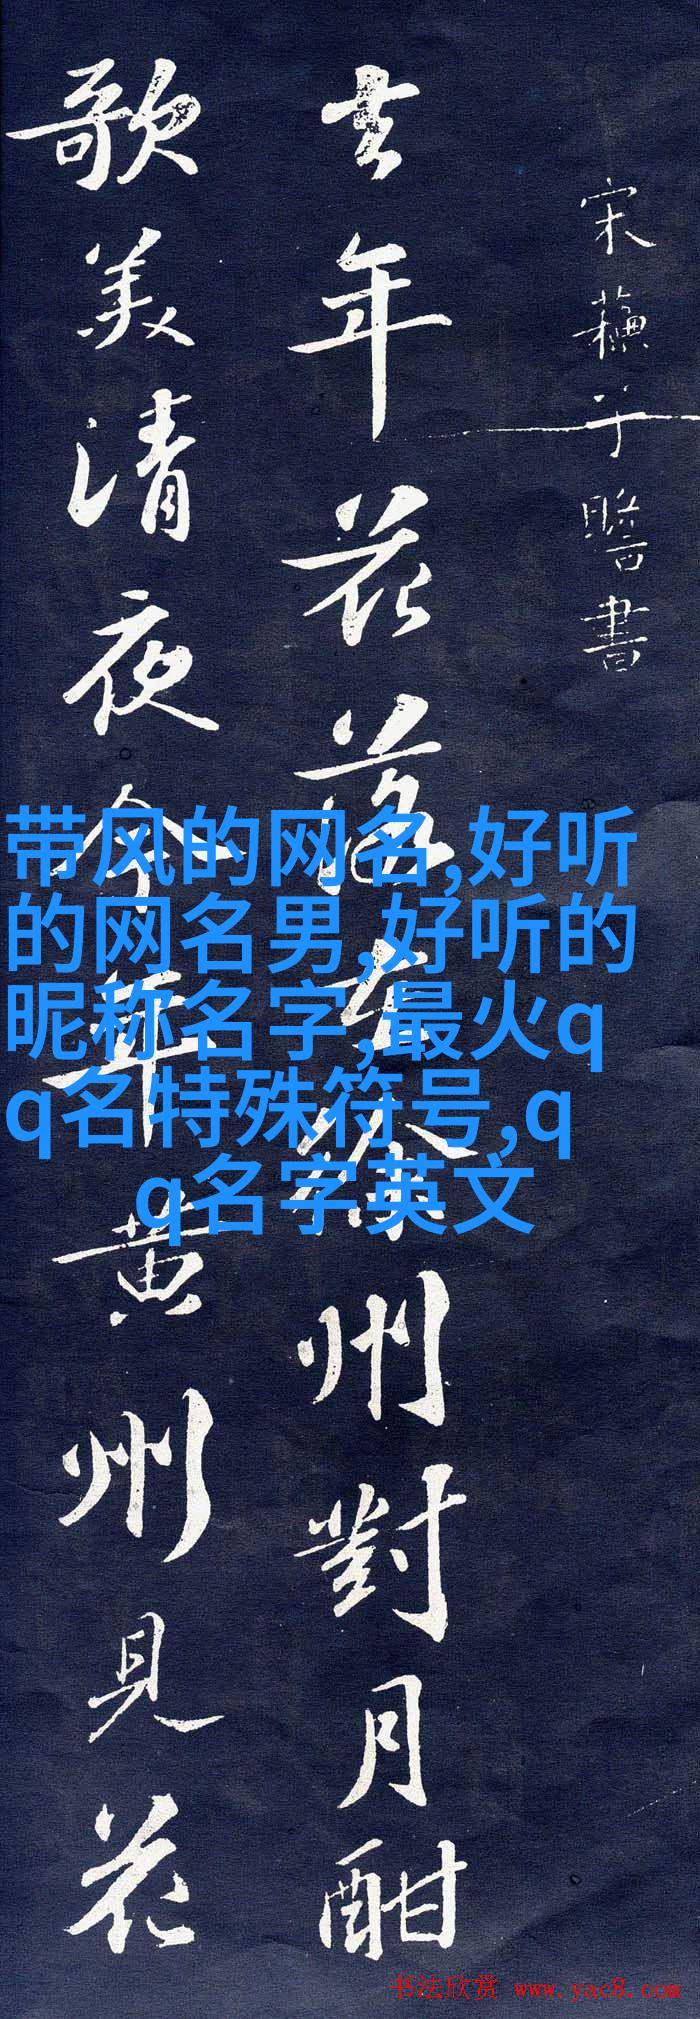 宋蘓子瞻書
去年花落在徐州對月酣
歌美清夜今年黄州見花
带风的网名,好听
的网名男,好听的
昵称名字,最火q
q名特殊符号,q
q名字英文
书法欣赏 www.yac8.com